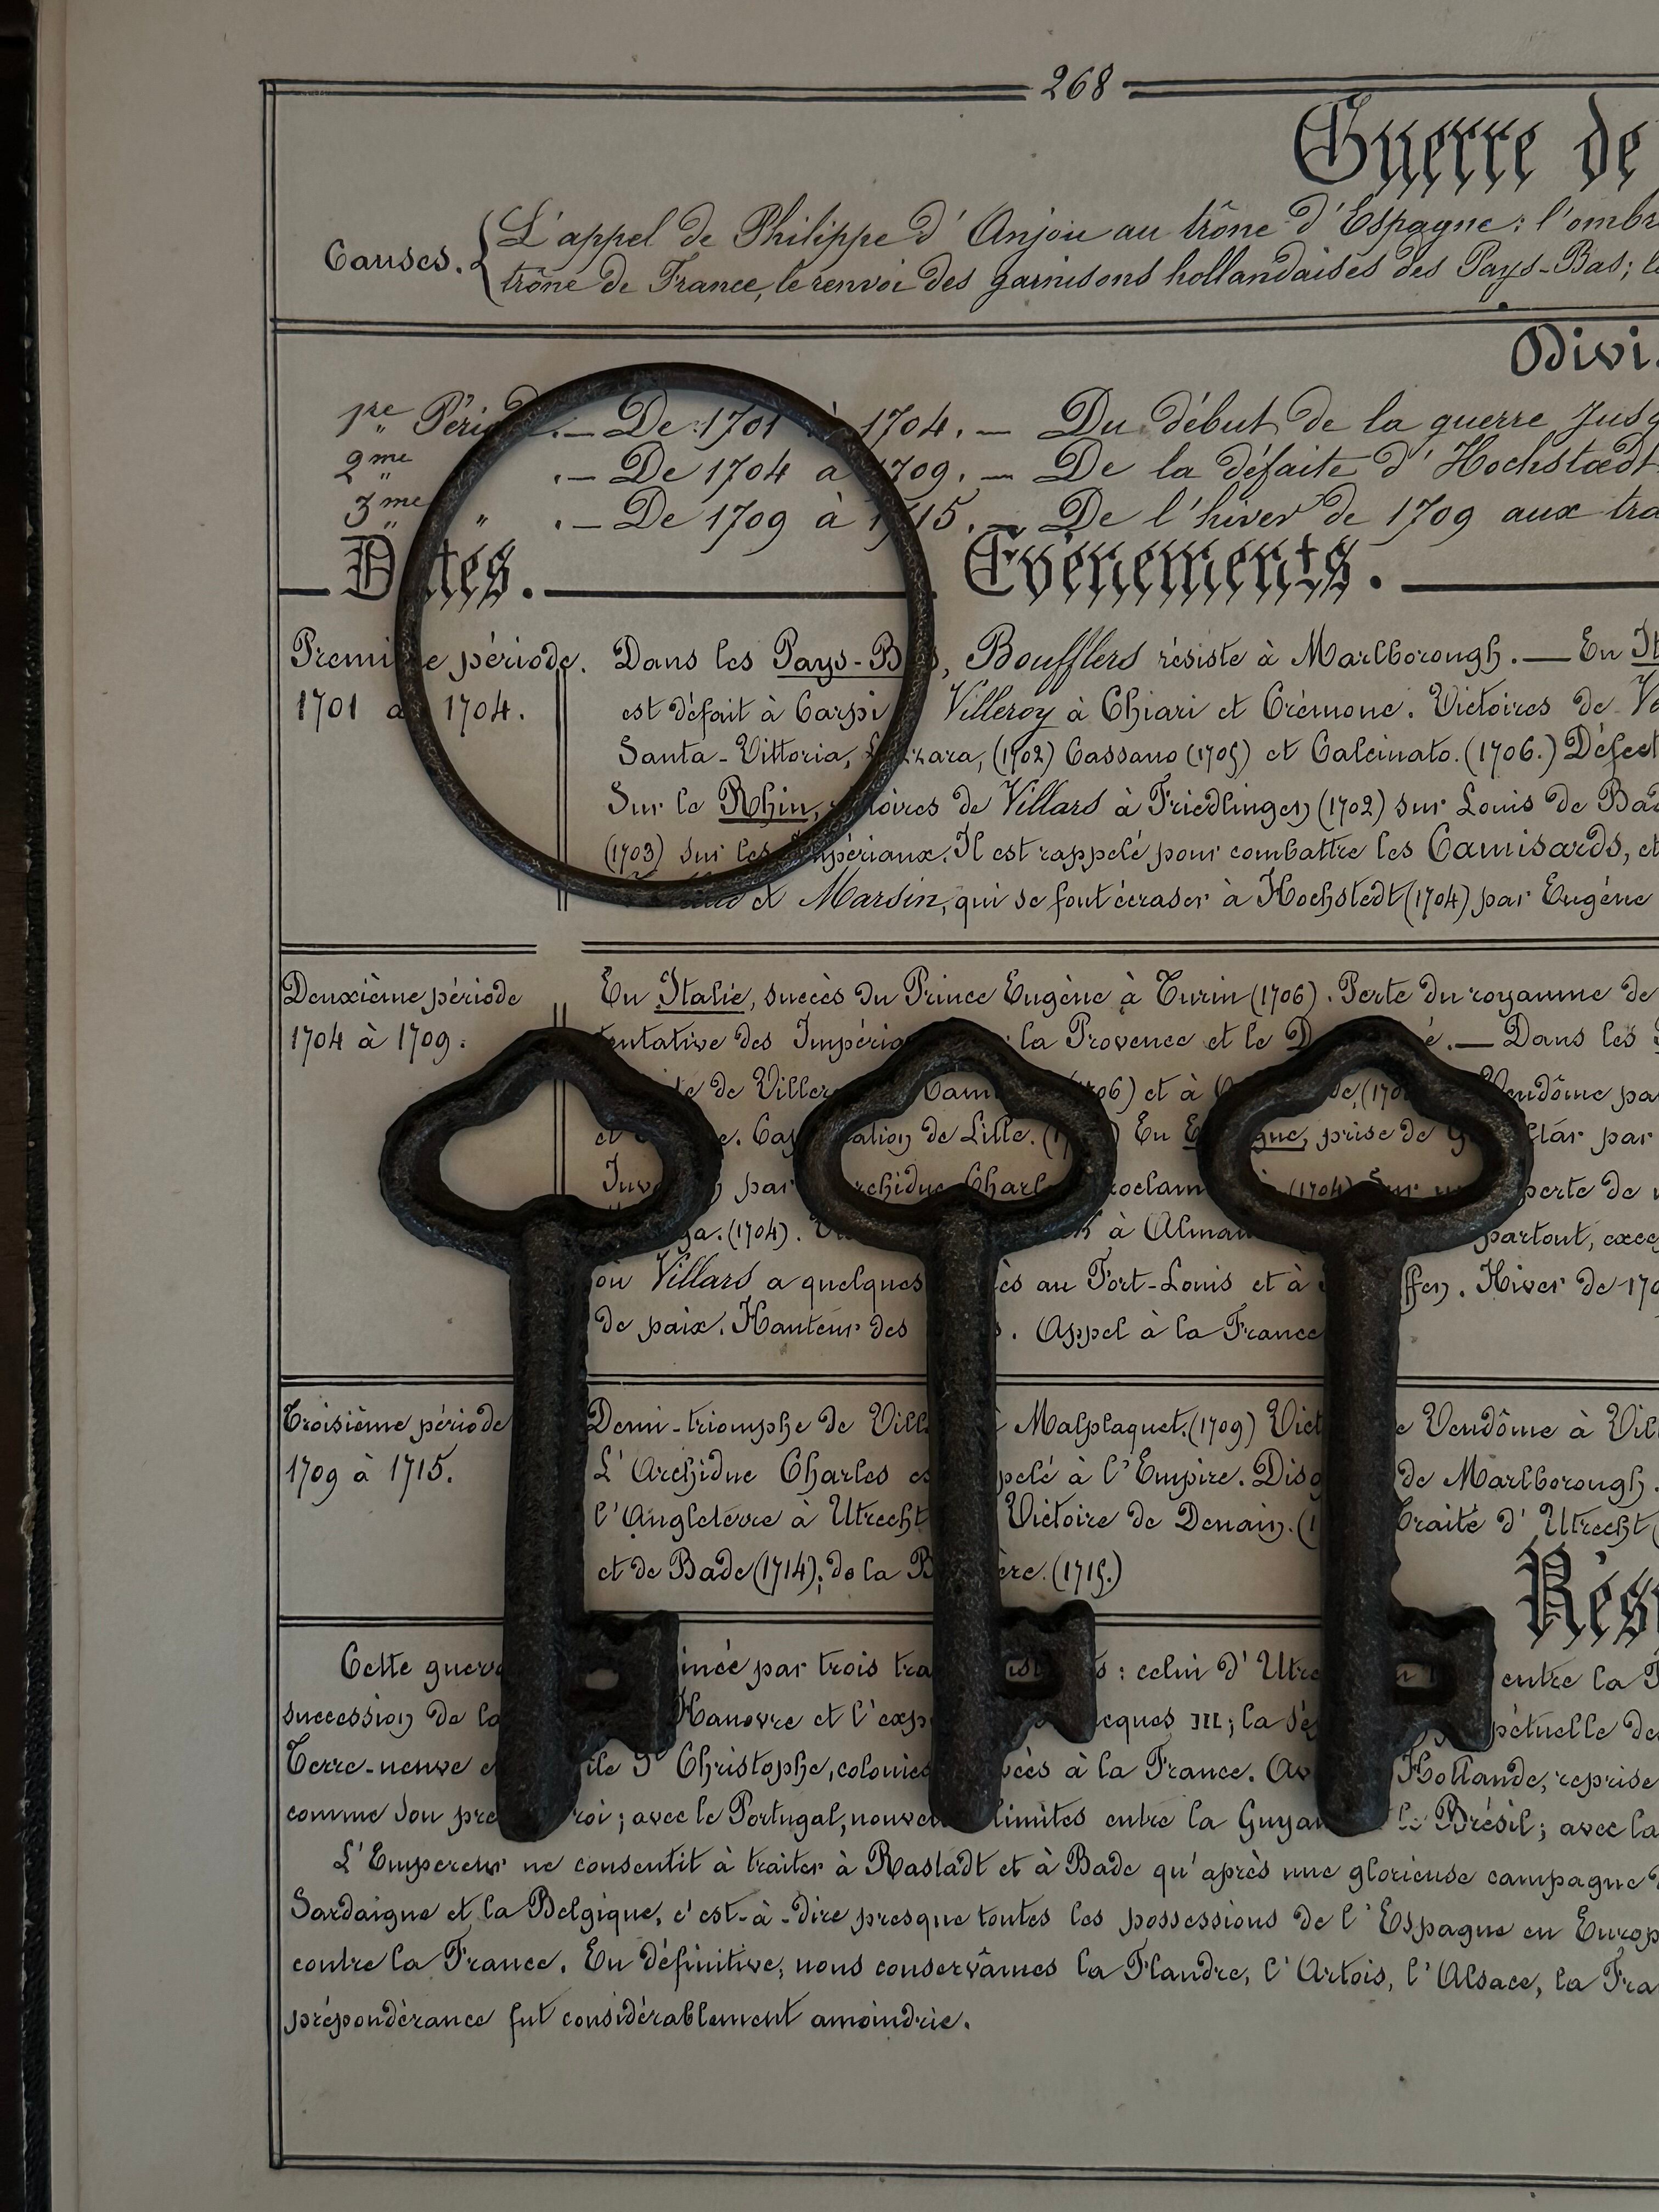 268
Guerre de
Causes. L'appel de Philippe d'Anjou au trône d'Espagne: l'ombr
trône de France, le renvoi des garnisons hollandaises des Pays-Bas; l
Divi
1re Péri — De 1701 à 1704. — Du début de la guerre jusq
2me " .— De 1704 à 1709. — De la défaite d'Hochstœdt
3me " " .— De 1709 à 1715. — De l'hiver de 1709 aux tra
Dates. Evènements.
Première période. Dans les Pays-Bas, Boufflers résiste à Marlborough. — En It
1701 à 1704. est défait à Carpi Villeroy à Chiari et Crémone. Victoires de Ve
Santa-Vittoria, Luzzara, (1702) Cassano (1705) et Calcinato. (1706.) Défect
Sur le Rhin, victoires de Villars à Friedlingen (1702) sur Louis de Bad
(1703) sur les Impériaux. Il est rappelé pour combattre les Camisards, et
et Marsin, qui se font écraser à Hochstedt (1704) par Eugène
Deuxième période En Italie, succès du Prince Eugène à Turin (1706). Perte du royaume de
1704 à 1709. tentative des Impéria la Provence et le D é. — Dans les
te de Viller Rami (1706) et à de, (170 Vendôme pa
et e. Capitulation de Lille. ( ) En Espagne, prise de G ltar par
Inv par Archiduc Charl proclam (1704) Sur perte de
ga. (1704). à Alman partout, excep
où Villars a quelques succès au Fort-Louis et à ffen. Hiver de 170
de paix. Hauteur des . Appel à la France
Troisième période Demi-triomphe de Villars à Malplaquet. (1709) Victoire de Vendôme à Vil
1709 à 1715. L'Archiduc Charles est appelé à l'Empire. Disg de Marlborough.
l'Angleterre à Utrecht Victoire de Denain. (1 Traité d'Utrecht (
et de Bade (1714); de la Barrière. (1715.)
Rés
Cette guerre inée par trois tra : celui d'Utre entre la F
succession de la Hanovre et l'exp Jacques III; la sé perpétuelle de
Terre-neuve e île St Christophe, colonies cédées à la France. Av Hollande, reprise
comme son pre roi; avec le Portugal, nouvelles limites entre la Guyane et le Brésil; avec la
L'Empereur ne consentit à traiter à Rastadt et à Bade qu'après une glorieuse campagne d
Sardaigne et la Belgique, c'est-à-dire presque toutes les possessions de l'Espagne en Europ
contre la France. En définitive, nous conservâmes la Flandre, l'Artois, l'Alsace, la Fra
prépondérance fut considérablement amoindrie.